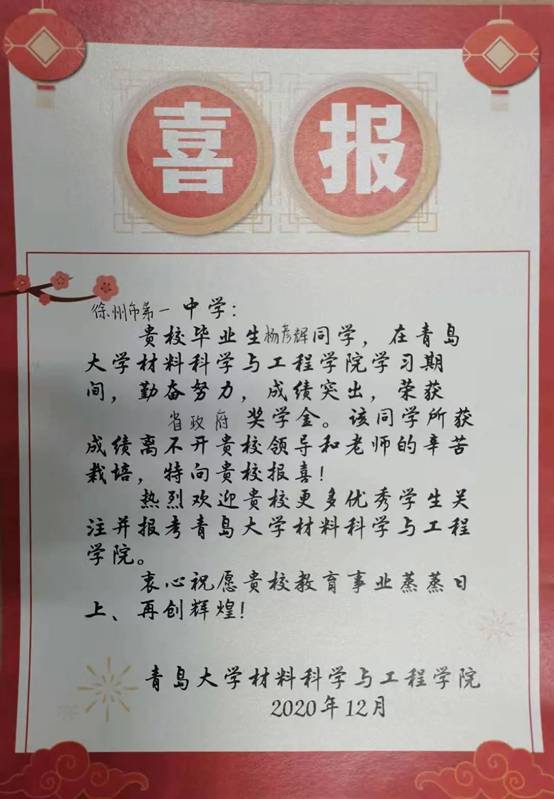 喜报
徐州市第一中学：
贵校毕业生杨彦辉同学，在青岛
大学材料科学与工程学院学习期
间，勤奋努力，成绩突出，荣获
省政府 奖学金。该同学所获
成绩离不开贵校领导和老师的辛苦
栽培，特向贵校报喜！
热烈欢迎贵校更多优秀学生关
注并报考青岛大学材料科学与工程
学院。
衷心祝愿贵校教育事业蒸蒸日
上、再创辉煌！
青岛大学材料科学与工程学院
2020年12月